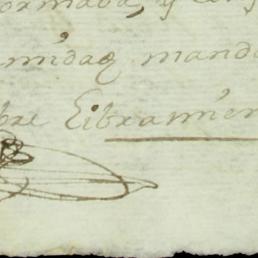 ormava, y
nidaq mand
bre Libramien